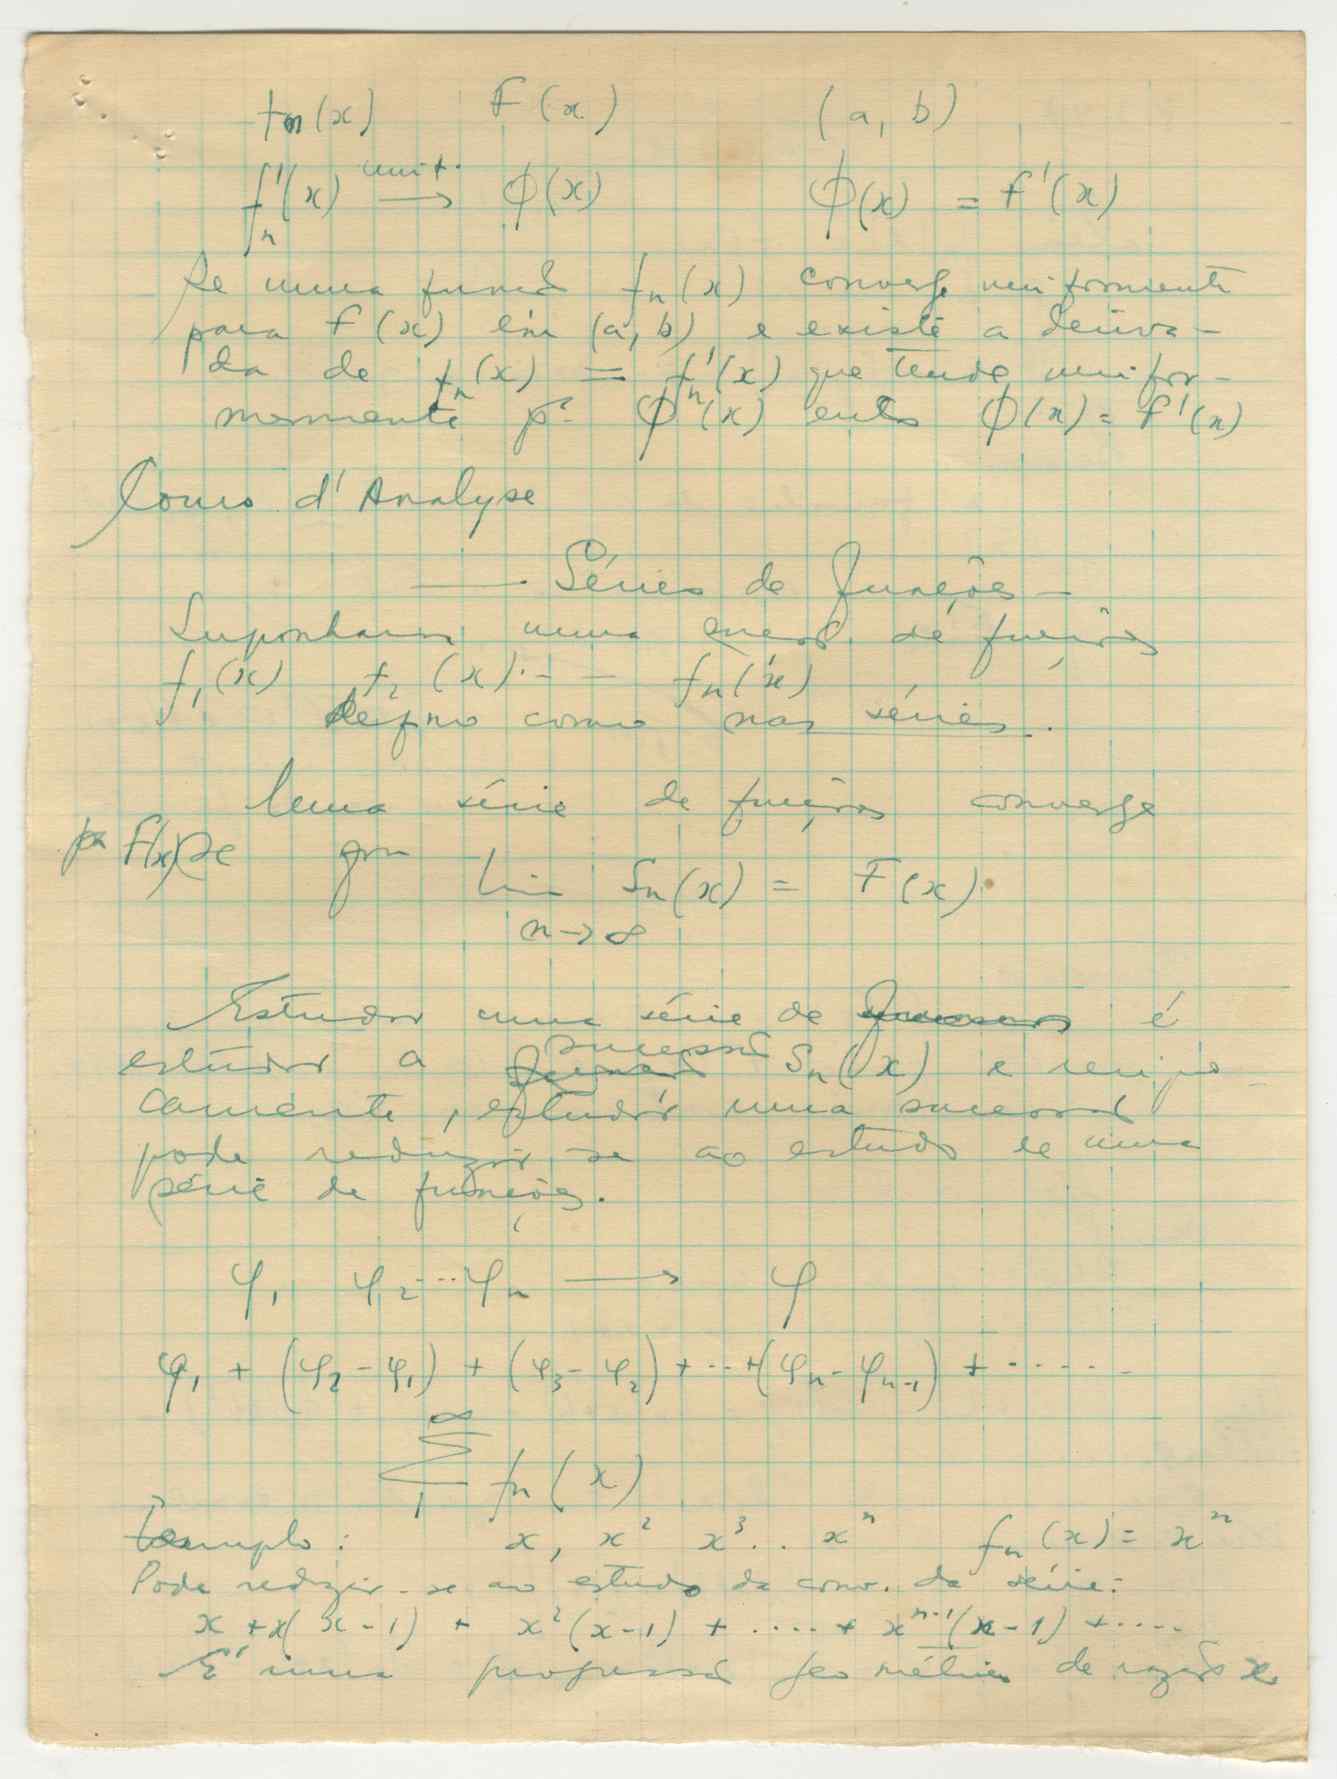 fn(x) F(x) (a, b)
f'n(x) unif. → ϕ(x) ϕ(x) = F'(x)
Se uma funcã fn(x) converge uniformente
para F(x) em (a, b) e existe a deriva-
da de fn(x) = f'n(x) que tende unifor-
memente pª ϕ(x) então ϕ(x) = F'(x)
Cours d'Analyse
— Séries de Funções —
Suponhamos uma sucess. de funções
f1(x) f2(x) . - - fn(x)
defino como nas séries.
Uma série de funções converge
pª F(x) se qdo
lim Sn(x) = F(x)
n→∞
Estudar uma série de é
estudar a sucessã Sn(x) e recipro
camente, estudar uma sucessã
pode reduzir-se ao estudo de uma
série de funções.
φ1, φ2 ... φn → φ
φ1 + (φ2 - φ1) + (φ3 - φ2) + ... + (φn - φn-1) + ......
∞
Σ fn(x)
1
Exemplo: x, x² x³ .. xⁿ fn(x) = xⁿ
Pode reduzir-se ao estudo da conv. da série:
x + x(x-1) + x²(x-1) + ..... + xⁿ⁻¹(x-1) + .....
É uma progressã geométrica de razão x